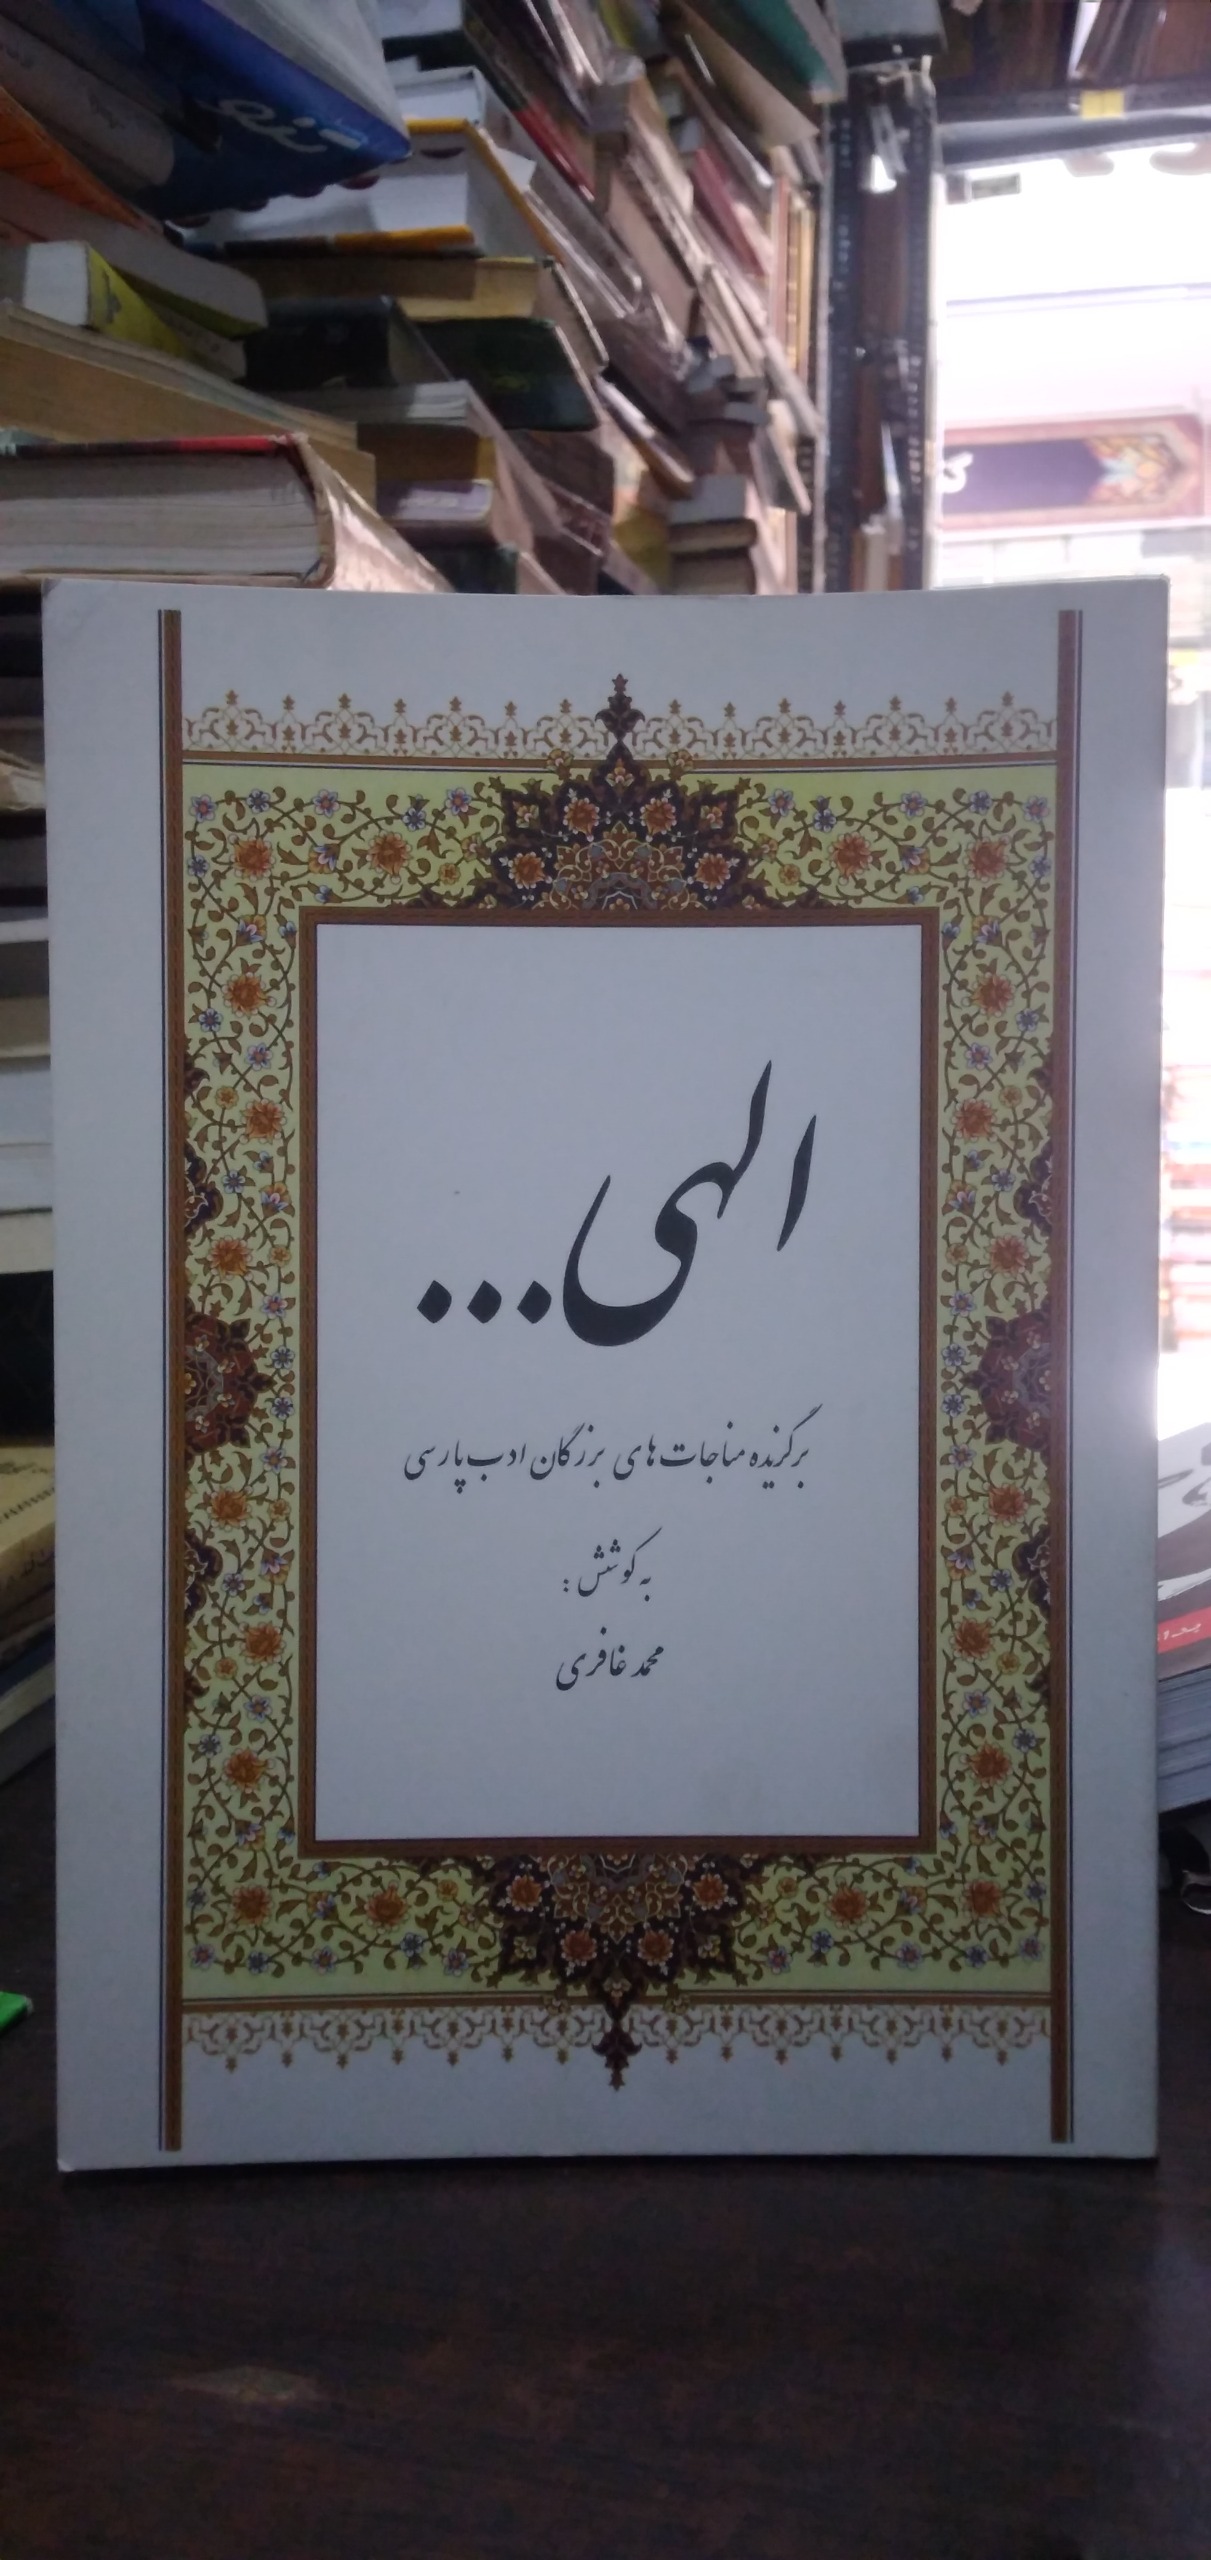 الهی...
برگزیده مناجات‌های بزرگان ادب پارسی
به کوشش :
محمد غافری